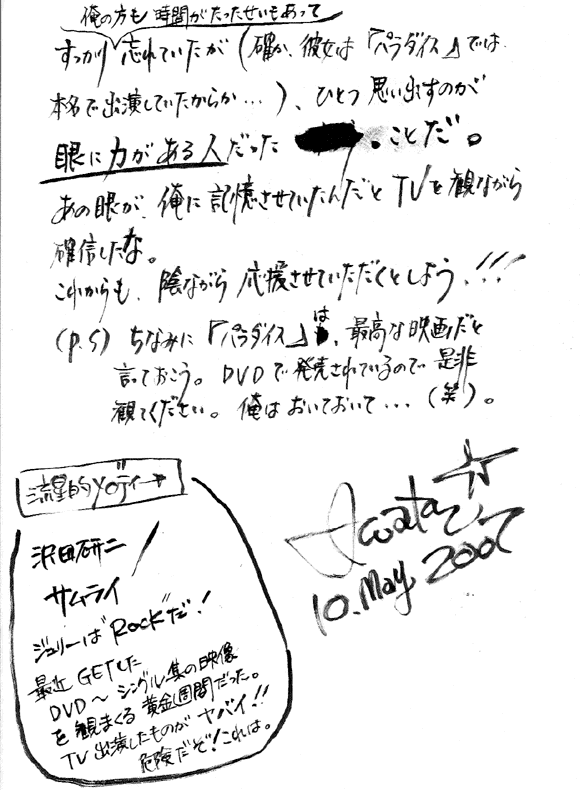 俺の方も時間がたったせいもあって
すっかり忘れていたが(確か、彼女は『パラダイス』では
本名で出演していたからか…)、ひとつ思い出すのが
眼に力がある人だった ことだ。
あの眼が、俺に記憶させていたんだとTVを観ながら
確信したな。
これからも、陰ながら応援させていただくとしよう!!!
(P.S) ちなみに『パラダイス』は、最高な映画だと
言っておこう。DVDで発売されているので是非
観てください。俺はおいておいて…(笑)。
流星的メロディー
沢田研二/
サムライ
ジュリーは"ROCK"だ!
最近GETした
DVD〜シングル集の映像
を観まくる黄金週間だった。
TV出演したものがヤバイ!!
危険だぞ!これは。
10. May 2007